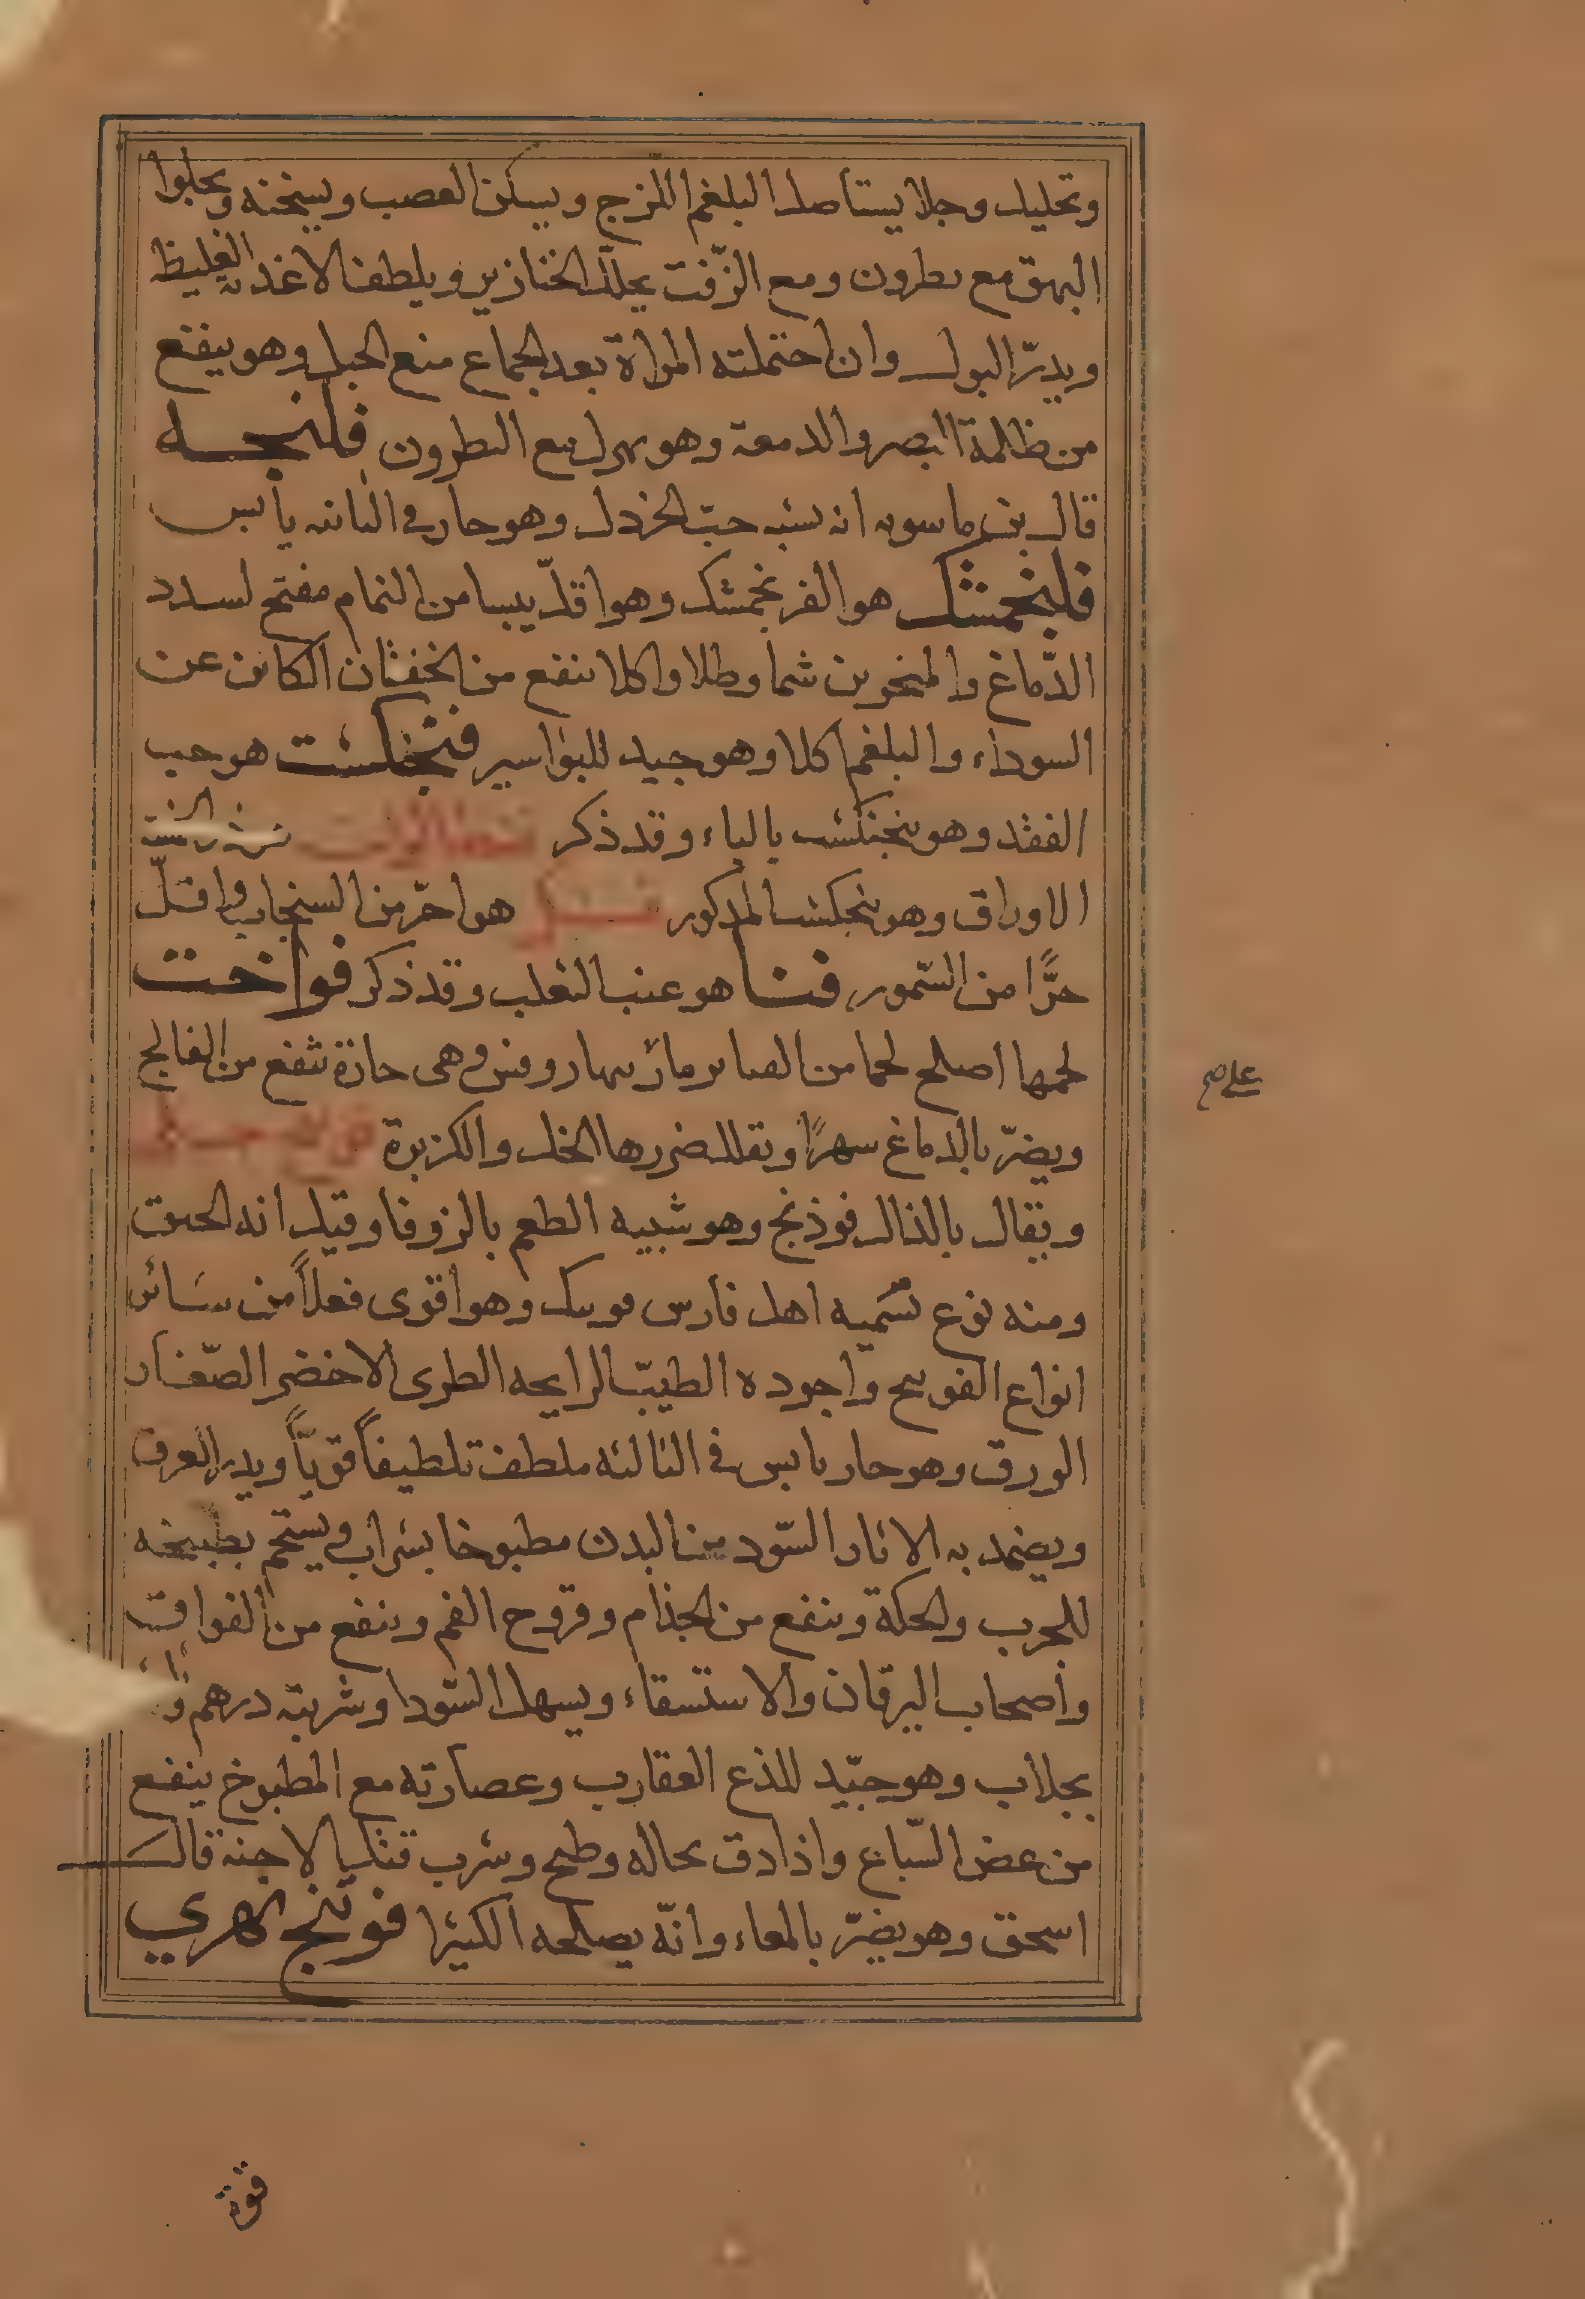 وتحليل وجلا يستأصل البلغم اللزج ويسكن العصب ويسخنه ويجلوا
البهق مع نطرون ومع الزّفت يحلّل الخنازير ويلطف الاغذيه الغليظ
ويدرّ البول وان احتملته المراة بعد الجماع منع الحبل وهو ينفع
من ظلمة البصر والدمعة وهو يهزل مع النطرون فلنجه
قال بن ماسويه انه يشبه حبّ الخردل وهو حار في الثانيه يابس
فلنجمشك هو الفرنجمشك وهو اقلّ يبسا من النمام مفتح لسدد
الدّماغ والمنخرين شما وطلا واكلا ينفع من الخفقان الكائن عن
السوداء والبلغم اكلا وهو جيد للبواسير فنجنكشت هو حب
الفقد وهو بنجنكشت بالباء وقد ذكر
الاوراق وهو بنجنكشت المذكور فنك هو احرّ من السنجاب واقلّ
حرًّا من السّمور فنا هو عنب الثعلب وقد ذكر فواخت
لحمها اصلح لحما من وهي حارة تنفع من الفالج
ويضرّ بالدماغ سهرًا ويقلل ضررها الخل والكزبرة فوتنج جبلي
ويقال بالذال فوذنج وهو شبيه الطعم بالزوفا وقيل انه الحبق
ومنه نوع تسميه اهل فارس وهو اقوى فعلاً من سائر
انواع الفوتنج واجوده الطيّب الرايحه الطرى الاخضر الصّغار
الورق وهو حار يابس في الثالثه ملطف تلطيفاً قويّاً ويدر العرق
ويضمد به الاثار السّود من البدن مطبوخا بشراب ويستحم بطبيخه
للجرب والحكة وينفع من الجذام وقروح الفم وينفع من الفواق
واصحاب اليرقان والاستسقاء ويسهل السّودا وشربته درهم
بجلاب وهو جيّد للذع العقارب وعصارته مع المطبوخ ينفع
من عض السّباع واذا دق بحاله وطبخ وشرب قتل الاجنة قال
اسحق وهو يضرّ بالمعاء وانّه يصلحه الكثيرا فوتنج نهري